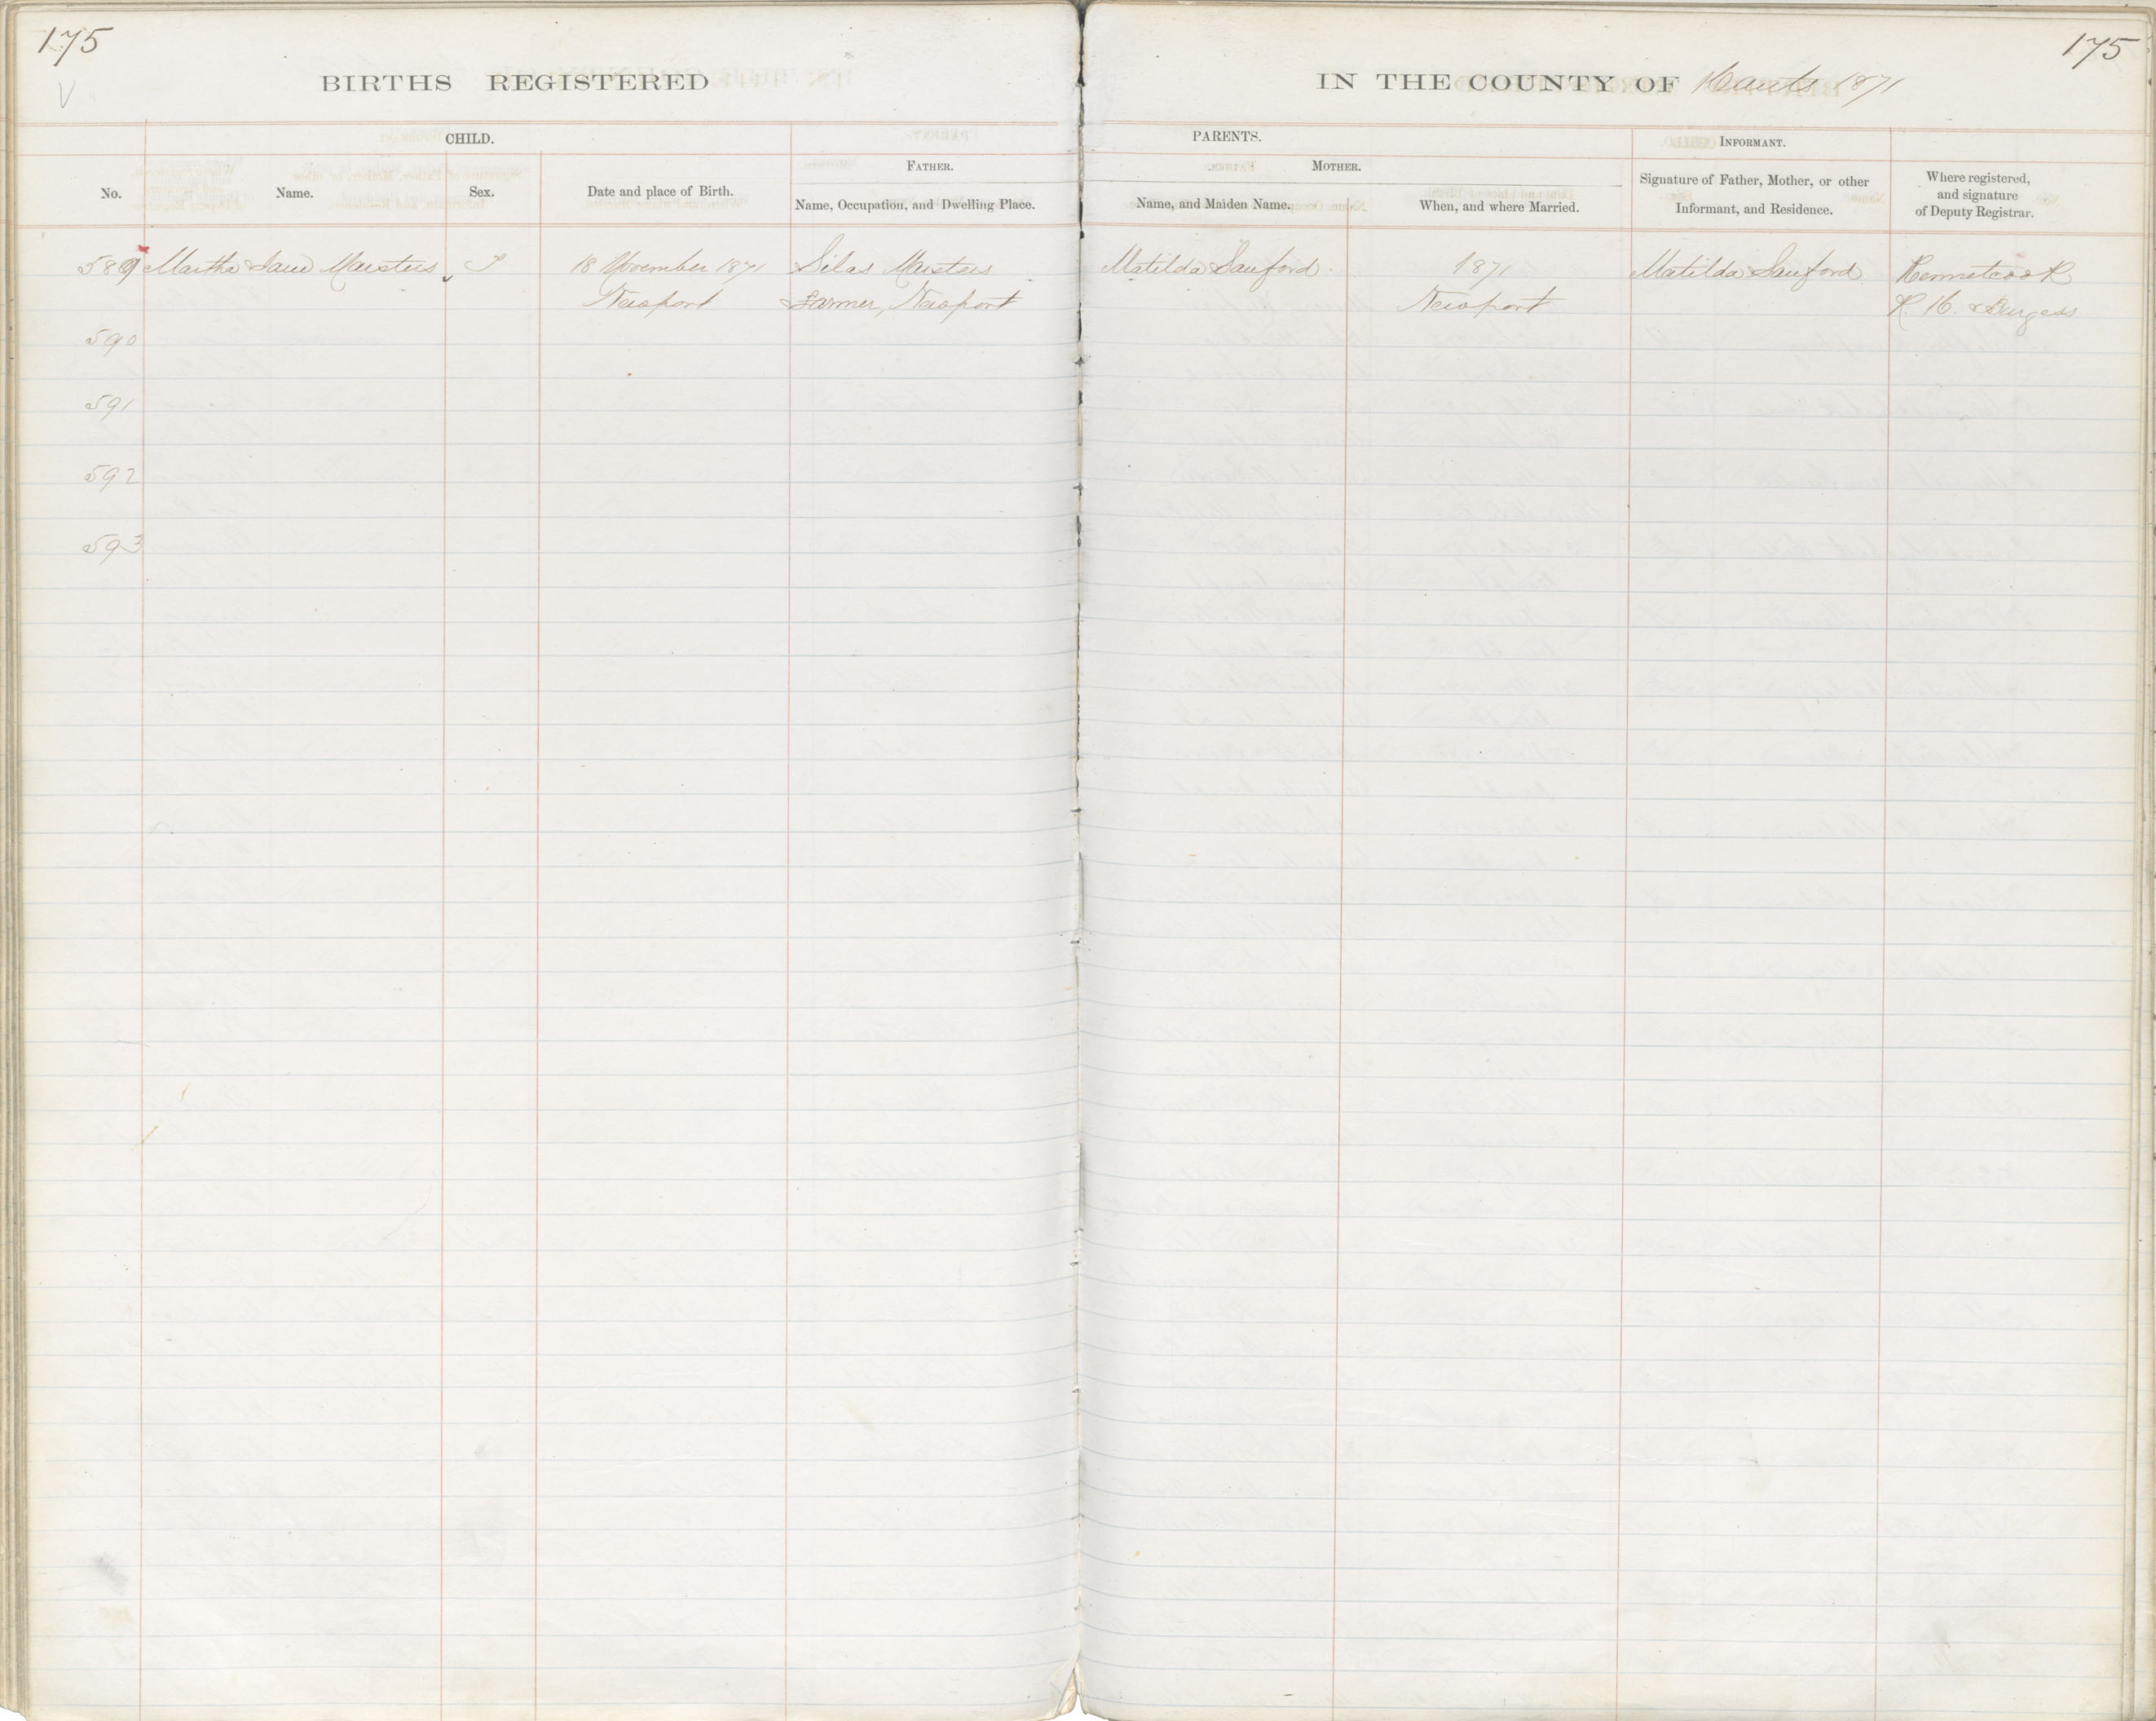 175
175
BIRTHS REGISTERED
IN THE COUNTY OF Hants 1871
CHILD.
PARENTS.
INFORMANT.
No.
Name.
Sex.
Date and place of Birth.
FATHER.
Name, Occupation, and Dwelling Place.
MOTHER.
Name, and Maiden Name.
When, and where Married.
Signature of Father, Mother, or other
Informant, and Residence.
Where registered,
and signature
of Deputy Registrar.
589 Martha Jane Marsters F 18 November 1871 Silas Marsters Matilda Sanford 1871 Matilda Sanford Kennetcook
Newport Farmer, Newport Newport R. H. Burgess
590
591
592
593